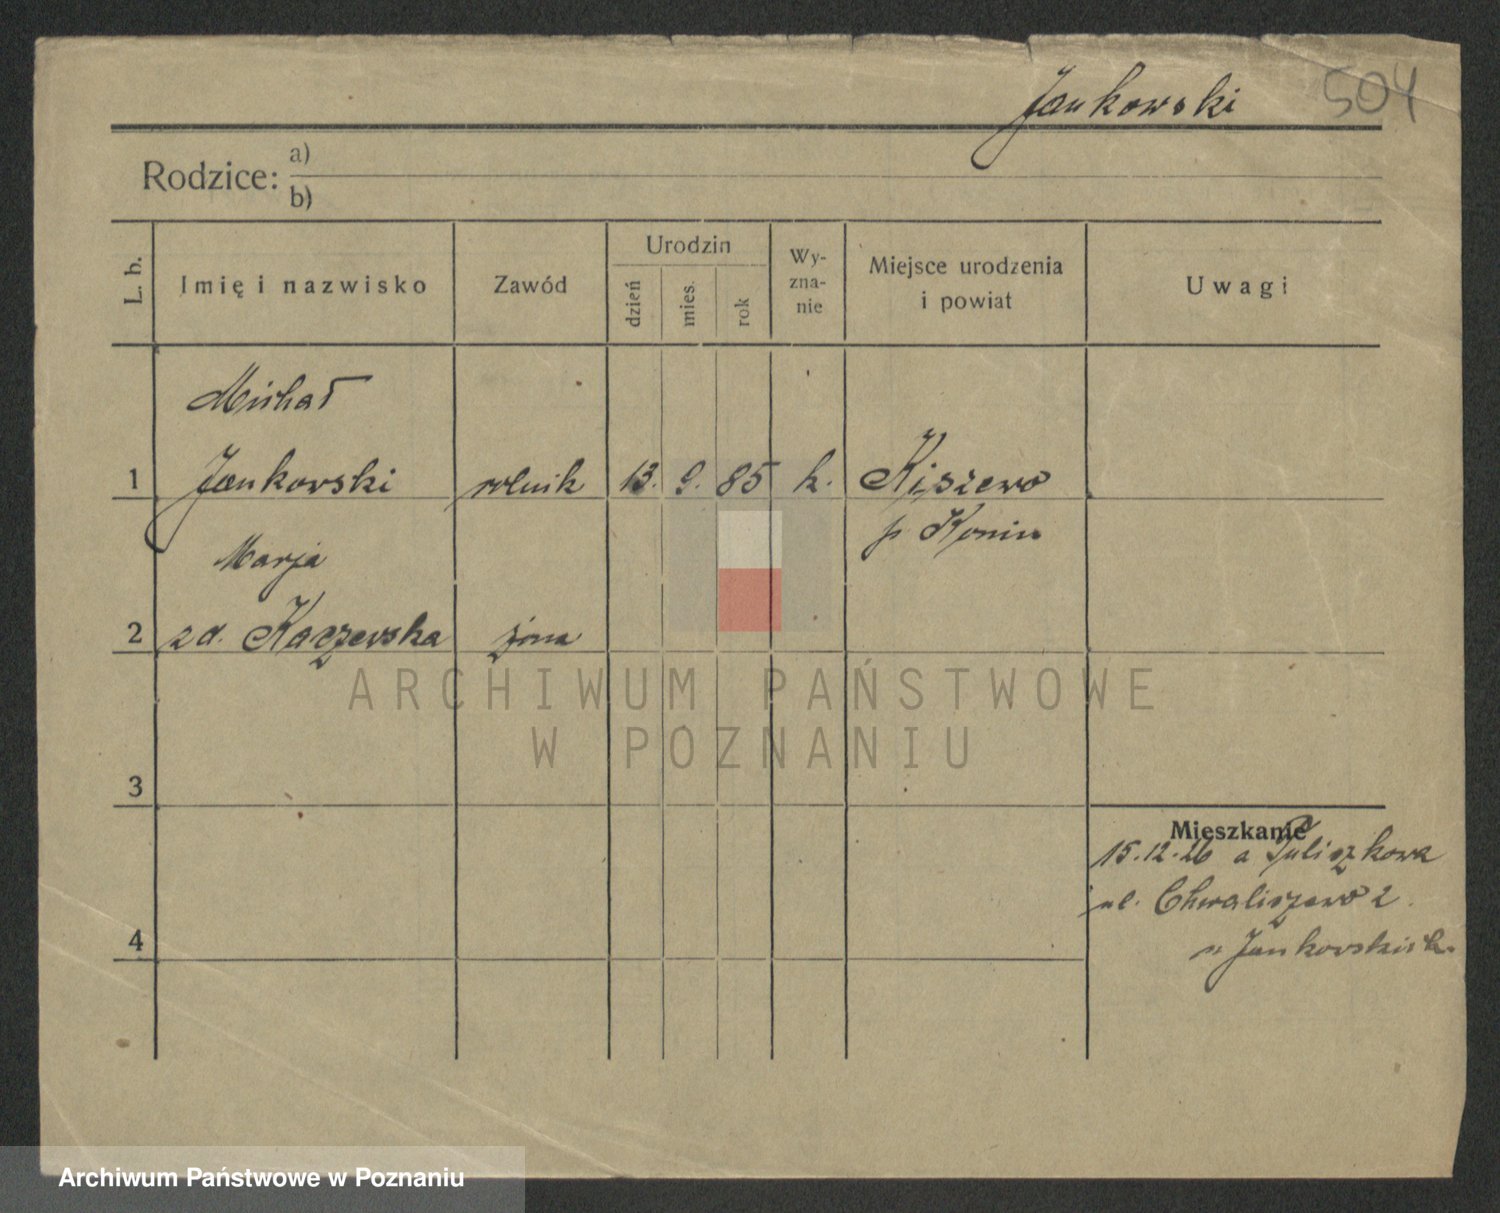 Jankowski 504
Rodzice: a)
b)
L. b.
Imię i nazwisko
Zawód
Urodzin
dzień
mies.
rok
Wy-
zna-
nie
Miejsce urodzenia
i powiat
Uwagi
Michał
1 Jankowski rolnik 13. 9. 85 k. Kiszewo
p Konin
Marja
2 zd. Kaczewska żona
ARCHIWUM PAŃSTWOWE
W POZNANIU
3
Mieszkanie
15.12.26 a Tuliszkowa
ul. Chwaliszewo 2
4
Archiwum Państwowe w Poznaniu